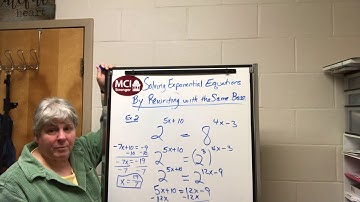 heart
MCI
Solving Exponential Equations
By Rewriting with the Same Base
Ex 2
2^(5x+10) = 8^(4x-3)
2^(5x+10) = (2^3)^(4x-3)
2^(5x+10) = 2^(12x-9)
5x+10 = 12x-9
-12x -12x
-7x+10 = -9
-10 -10
-7x = -19
-7 -7
x = 19/7